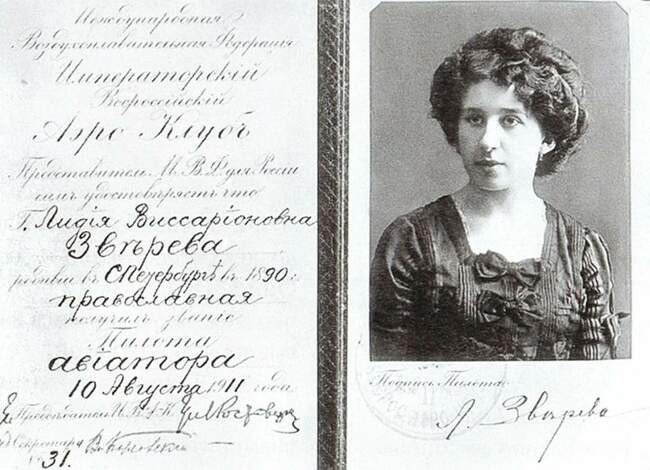 Международная
Воздухоплавательная Федерацiя
Императорскiй
Всероссiйскiй
Аэро Клубъ
Представитель М.В.Ф. для Россiи
симъ удостовѣряетъ что
Г. Лидiя Виссарiоновна
Звѣрева
родивш въ С Петербургѣ въ 1890 г.
православная
получилъ званiе
Пилота
авiатора
10 Августа 1911 года
Председатель И.В.А.К.
Секретарь
31.
Подпись Пилота
Л. Звѣрева